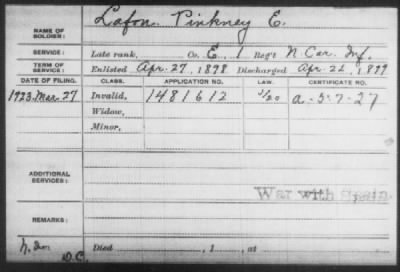 NAME OF SOLDIER: Lafon Pinkney E.
SERVICE: Late rank, Co. E, 1 Reg't N. Car. Inf.
TERM OF SERVICE: Enlisted Apr. 27, 1898 Discharged Apr. 22, 1899
DATE OF FILING. CLASS. APPLICATION NO. LAW. CERTIFICATE NO.
1923 Mar. 27 Invalid, 1481612 a-5-7-27
Widow,
Minor,
ADDITIONAL SERVICES:
War with Spain
REMARKS:
D.C. Died , 1 , at